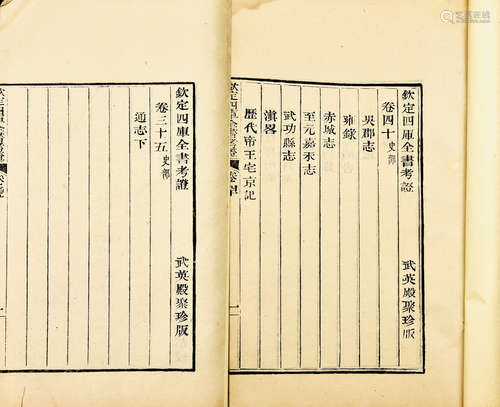 欽定四庫全書考證
武英殿聚珍版
卷四十史部
吳郡志
雍錄
赤城志
至元嘉禾志
武功縣志
滇畧
歷代帝王宅京記
欽定四庫全書考證
卷四十
一
欽定四庫全書考證
武英殿聚珍版
卷三十五史部
通志下